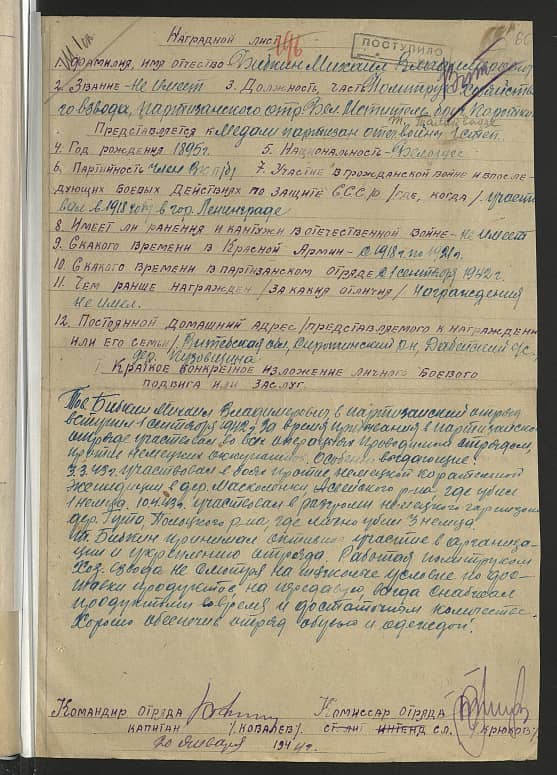 66
Наградной лист
196
ПОСТУПИЛО
1. Фамилия, имя отчество Бибкин Михаил Владимирович
2. Звание - Не имеет 3. Должность, часть Политрук хозяйствен
го взвода, партизанского отр.
Представляется к Медали партизан отеч войны 1 степ.
4. Год рождения 1895г. 5. Национальность - Белорус
6. Партийность член ВКП/б/ 7. Участие в гражданской войне и после-
дующих боевых действиях по защите СССР /где, когда/ участво
вал в 1918 году в гор. Ленинграде
8. Имеет ли ранения и кантужи в отечественной войне - не имеет
9. Скакого времени в Красной Армии - с 1918г по 1921г.
10. Скакого времени в партизанском отряде с 1 сентября 1942г.
11. Чем ранше награжден /за какия отличия/ награждения
не имел.
12. Постоянной домашний адрес /представляемого к награждени
или его семьи/ Витебская обл, Сиротинский р-н,
дер.
I Краткое конкретное изложение личного боевого
подвига или заслуг
Тов. Бибкин Михаил Владимирович в партизанский отряд
вступил 1 сентября 1942г. За время пребывания в партизанском
отряде участвовал во всех операциях проводимых отрядом,
против немецких оккупантов. Особенно выдающие:
3.3.43г. участвовал в боях против немецкой каратенной
экспедиции в дер. р-на, где убил
1 немца. 10.4.43г. участвовал в разгроми немецкого гарнизона
дер. Гута Полоцкого р-на, где лично убил 3 немца.
тов. Бибкин принимал активное участие в организа-
ции и укреплению отряда. Работая политруком
Хоз. взвода не смотря на тяжолые условие по дос-
тавки продуктов, на передавую всегда снабжал
продуктами во время и достаточном количестве.
Хорошо обеспечил отряд обувью и одеждой.
Командир отряда Комиссар отряда
капитан /Ковалев/ ст. лит интенд сл. /Крюков/
20 января 1944г.